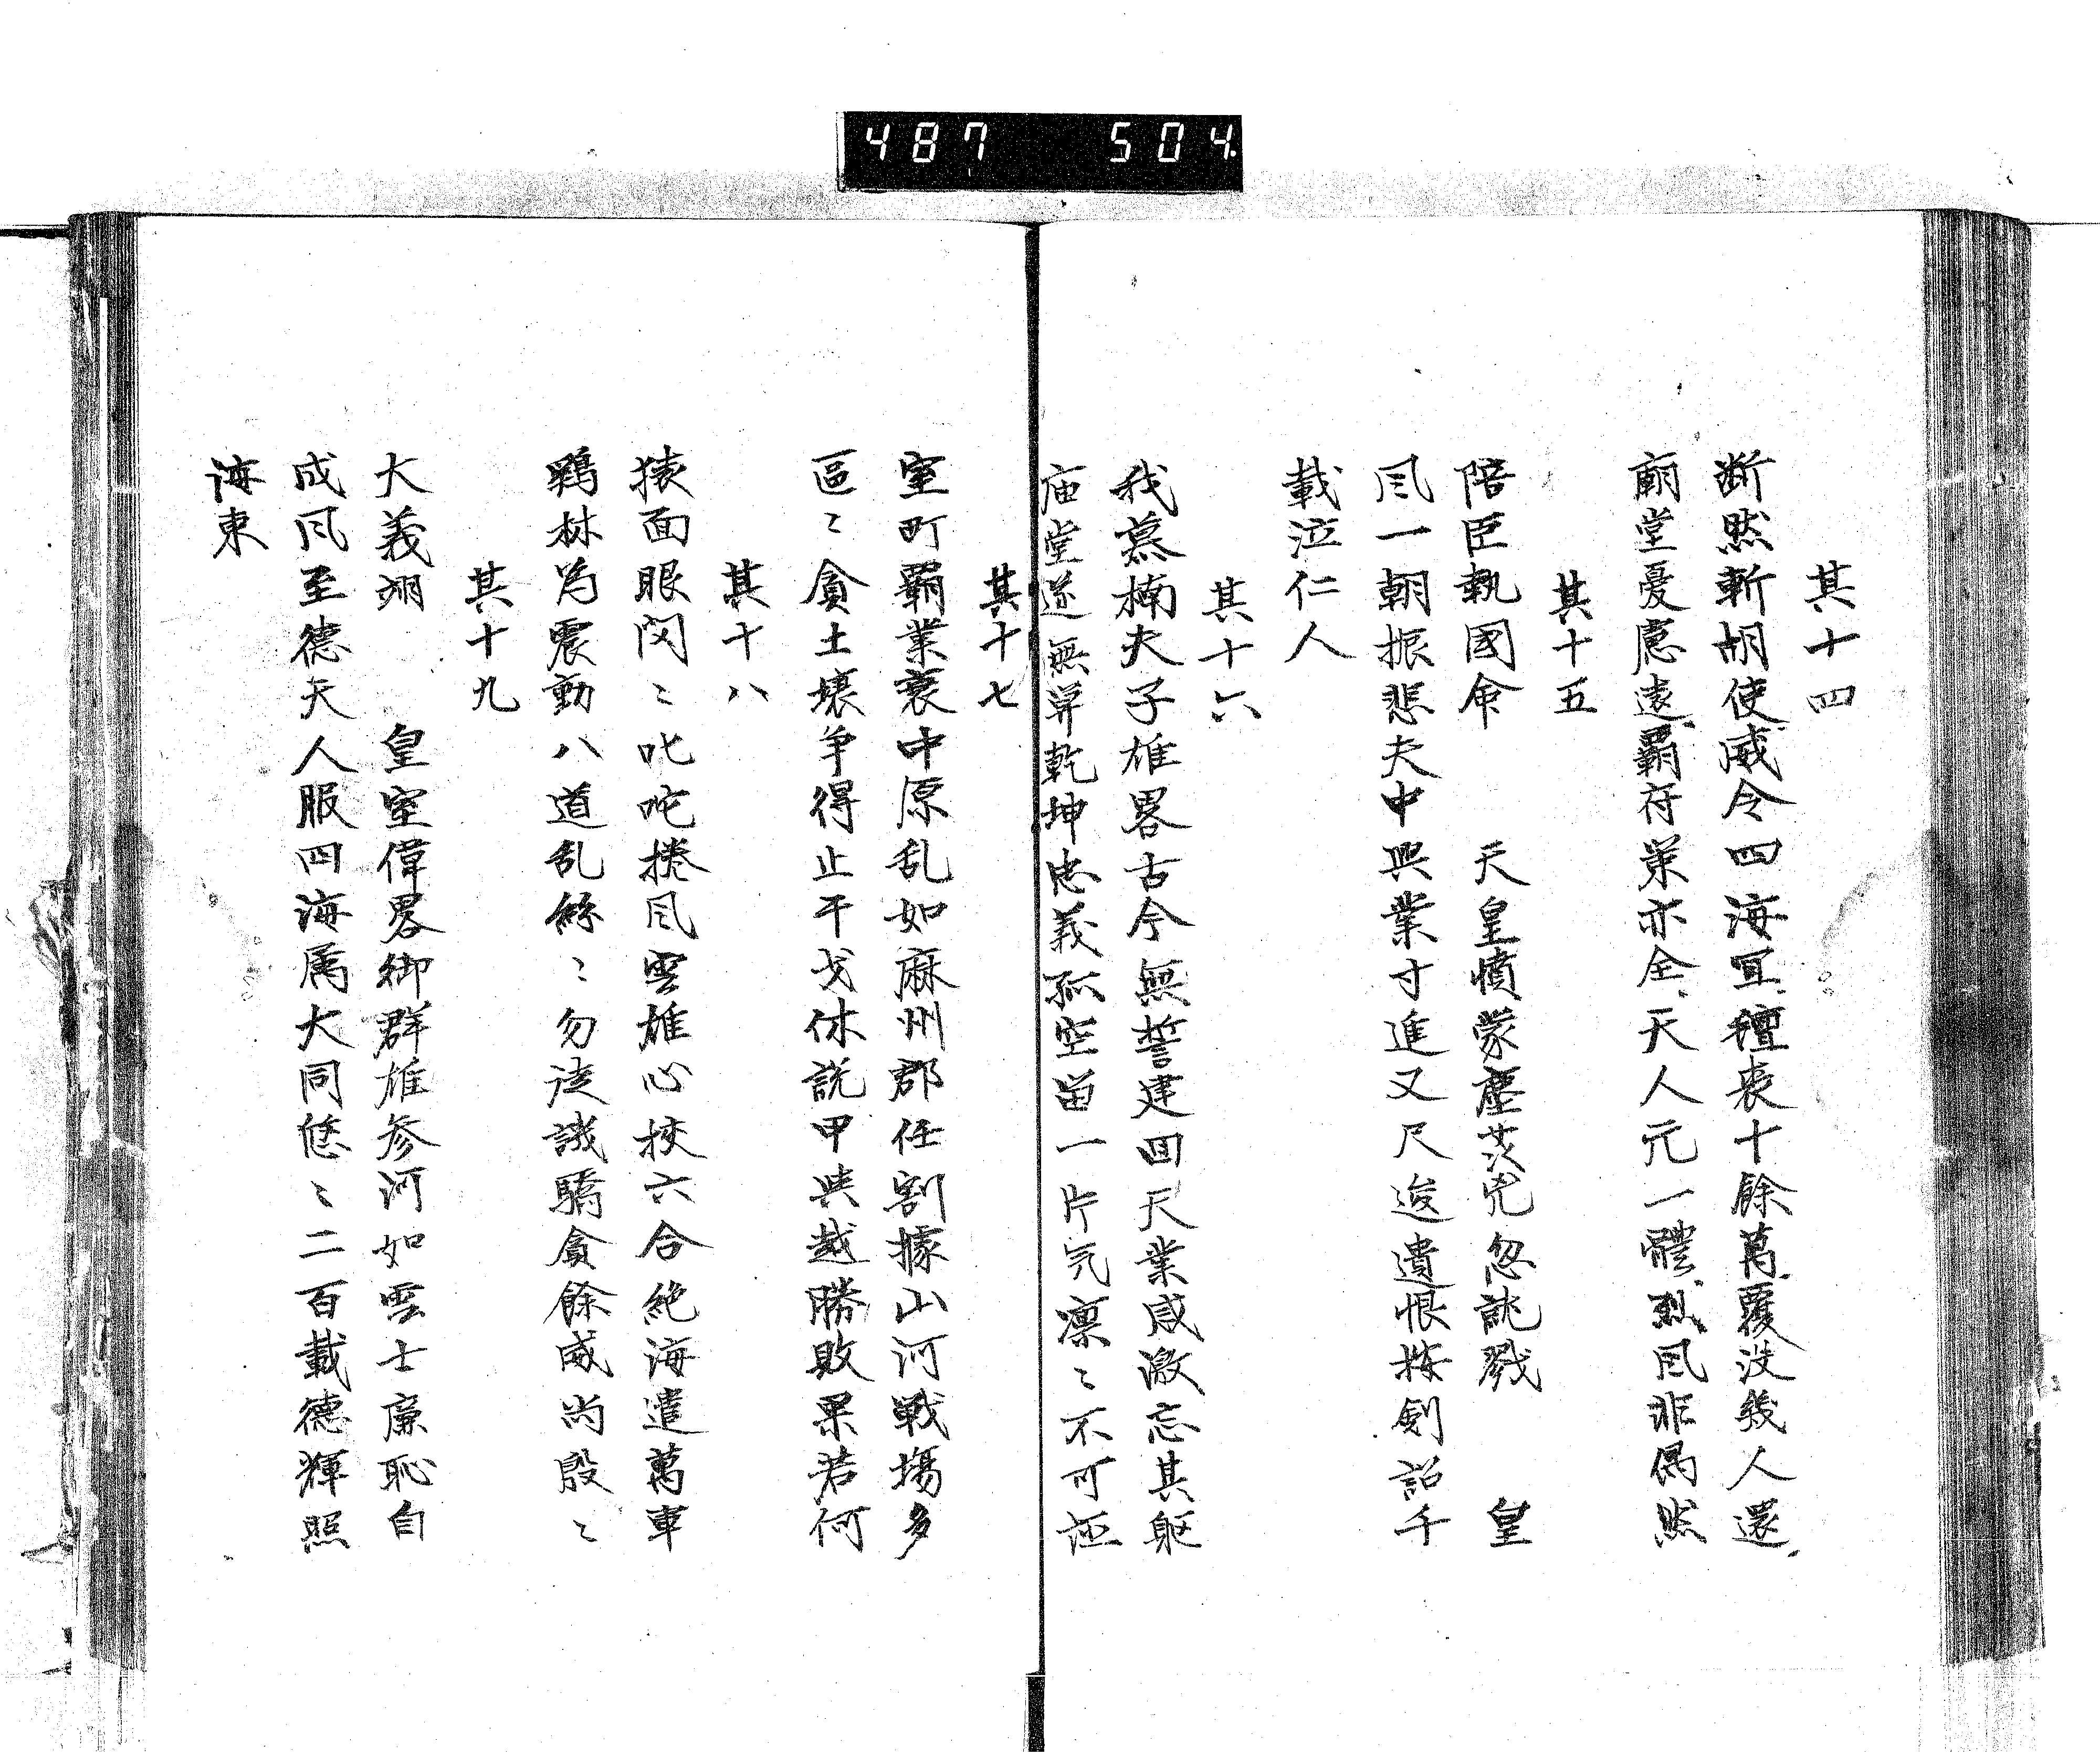 487 504
其十四
断然斬胡使威令四海亘檀喪十餘萬覆没幾人還
廟堂憂慮遠覇府策亦全天人元一體烈風非偶然
其十五
陪臣執國命 天皇憤蒙塵茨兇忽誅戮 皇
風一朝振悲夫中興業寸進又尺逡遺恨按劍詔千
載泣仁人
其十六
我慕楠夫子雄畧古今無誓建回天業感激忘其躯
庙堂遂無筭乾坤忠義孤空留一片氣凛〻不可誣
其十七
室町覇業衰中原乱如麻州郡任割據山河戦場多
區〻貪土壌争得止干戈休説甲與越勝敗果若何
其十八
猿面眼閃〻叱咤捲風雲雄心挾六合絶海遣萬軍
鶏林为震動八道乱絲〻勿徒議驕貪餘威尚殷〻
其十九
大義翊 皇室偉畧御群雄参河如雲士廉恥自
成风至德天人服四海属大同恁〻二百載德輝照
海東